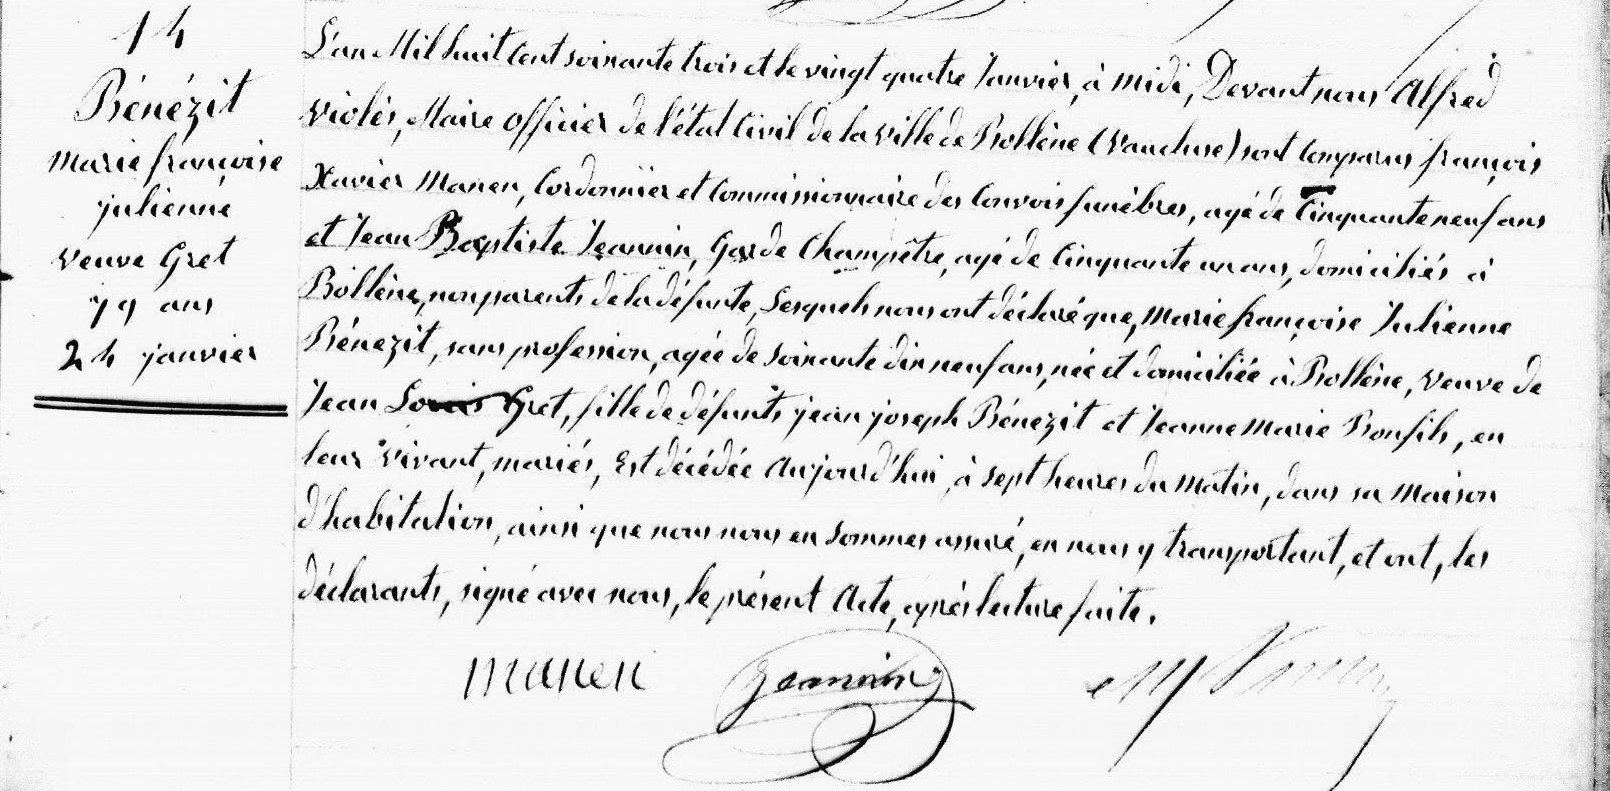 14
Bénézit
marie françoise
julienne
veuve Gret
79 ans
24 janvier
L'an Mil huit Cent soixante trois et le vingt quatre Janvier, à midi, Devant nous Alfred
Violès, Maire officier de l'état Civil de la Ville de Bollène (Vaucluse) sont Comparus françois
Xavier Manen, Cordonnier et Commissionnaire des Convois funèbres, agé de Cinquante neuf ans
et Jean Baptiste Jeannin, Garde Champêtre, agé de Cinquante un ans, domiciliés à
Bollène, non parents de la défunte, Lesquels nous ont déclaré que, Marie françoise Julienne
Bénézit, sans profession, agée de soixante dix neuf ans, née et domiciliée à Bollène, Veuve de
Jean Louis Gret, fille de défunts jean joseph Bénézit et Jeanne Marie Bonfils, en
leur vivant, mariés, Est décédée Aujourd'hui, à sept heures du Matin, dans sa Maison
d'habitation, ainsi que nous nous en sommes assuré, en nous y transportant, et ont, les
déclarants, signé avec nous, le présent Acte, après lecture faite.
manen Jeannin